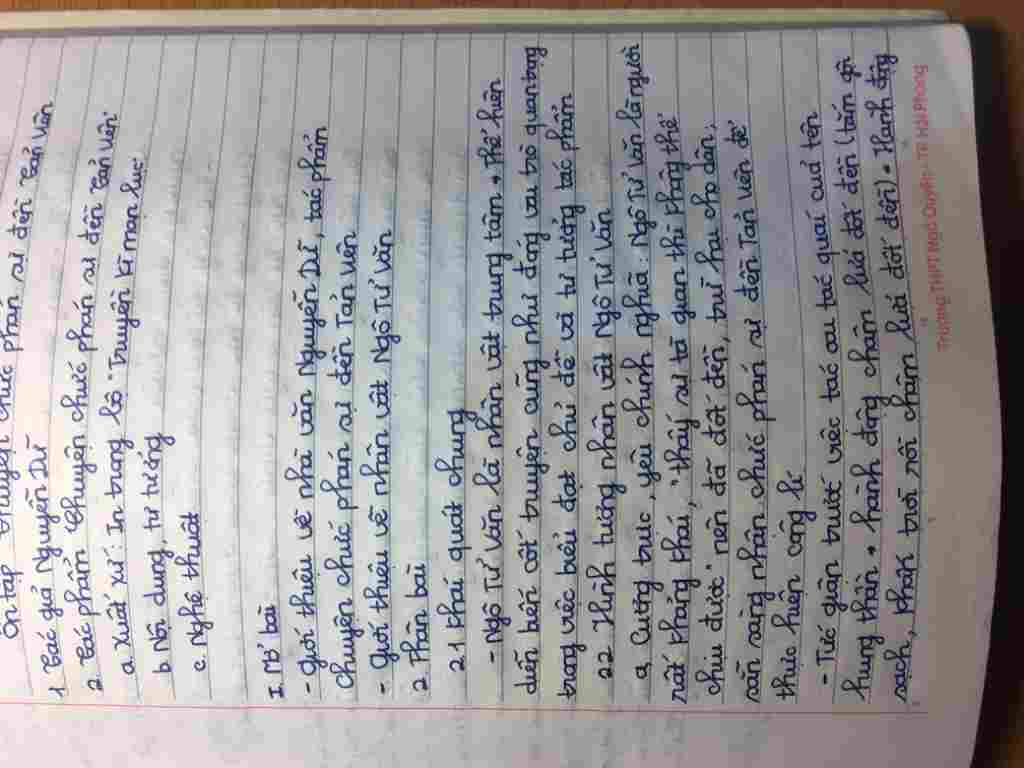 Ôn tập Chuyện chức phán sự đền Tản Viên
1 Tác giả Nguyễn Dữ
2. Tác phẩm Chuyện chức phán sự đền Tản Viên
a. Xuất xứ: In trong bộ "Truyền kì mạn lục"
b. Nội dung, tư tưởng
c. Nghệ thuật
I. Mở bài
- Giới thiệu về nhà văn Nguyễn Dữ, tác phẩm
Chuyện chức phán sự đền Tản Viên
- Giới thiệu về nhân vật Ngô Tử Văn
2 Thân bài
2.1 Khái quát chung
- Ngô Tử Văn là nhân vật trung tâm → thể hiện
diễn biến cốt truyện cũng như đóng vai trò quan trọng
trong việc biểu đạt chủ đề và tư tưởng tác phẩm
2.2 Hình tượng nhân vật Ngô Tử Văn
a, Cương trực, yêu chính nghĩa: Ngô Tử Văn là người
rất khảng khái, "thấy sự tà gian thì không thể
chịu được" nên đã đốt đền, trừ hại cho dân,
sẵn sàng nhận chức phán sự đền Tản Viên để
thực hiện công lí
- Tức giận trước việc tác oai tác quái của tên
hung thần → hành động châm lửa đốt đền (tắm gội
sạch, khấn trời rồi châm lửa đốt đền) → Hành động
Trường THPT Ngô Quyền - TP Hải Phòng